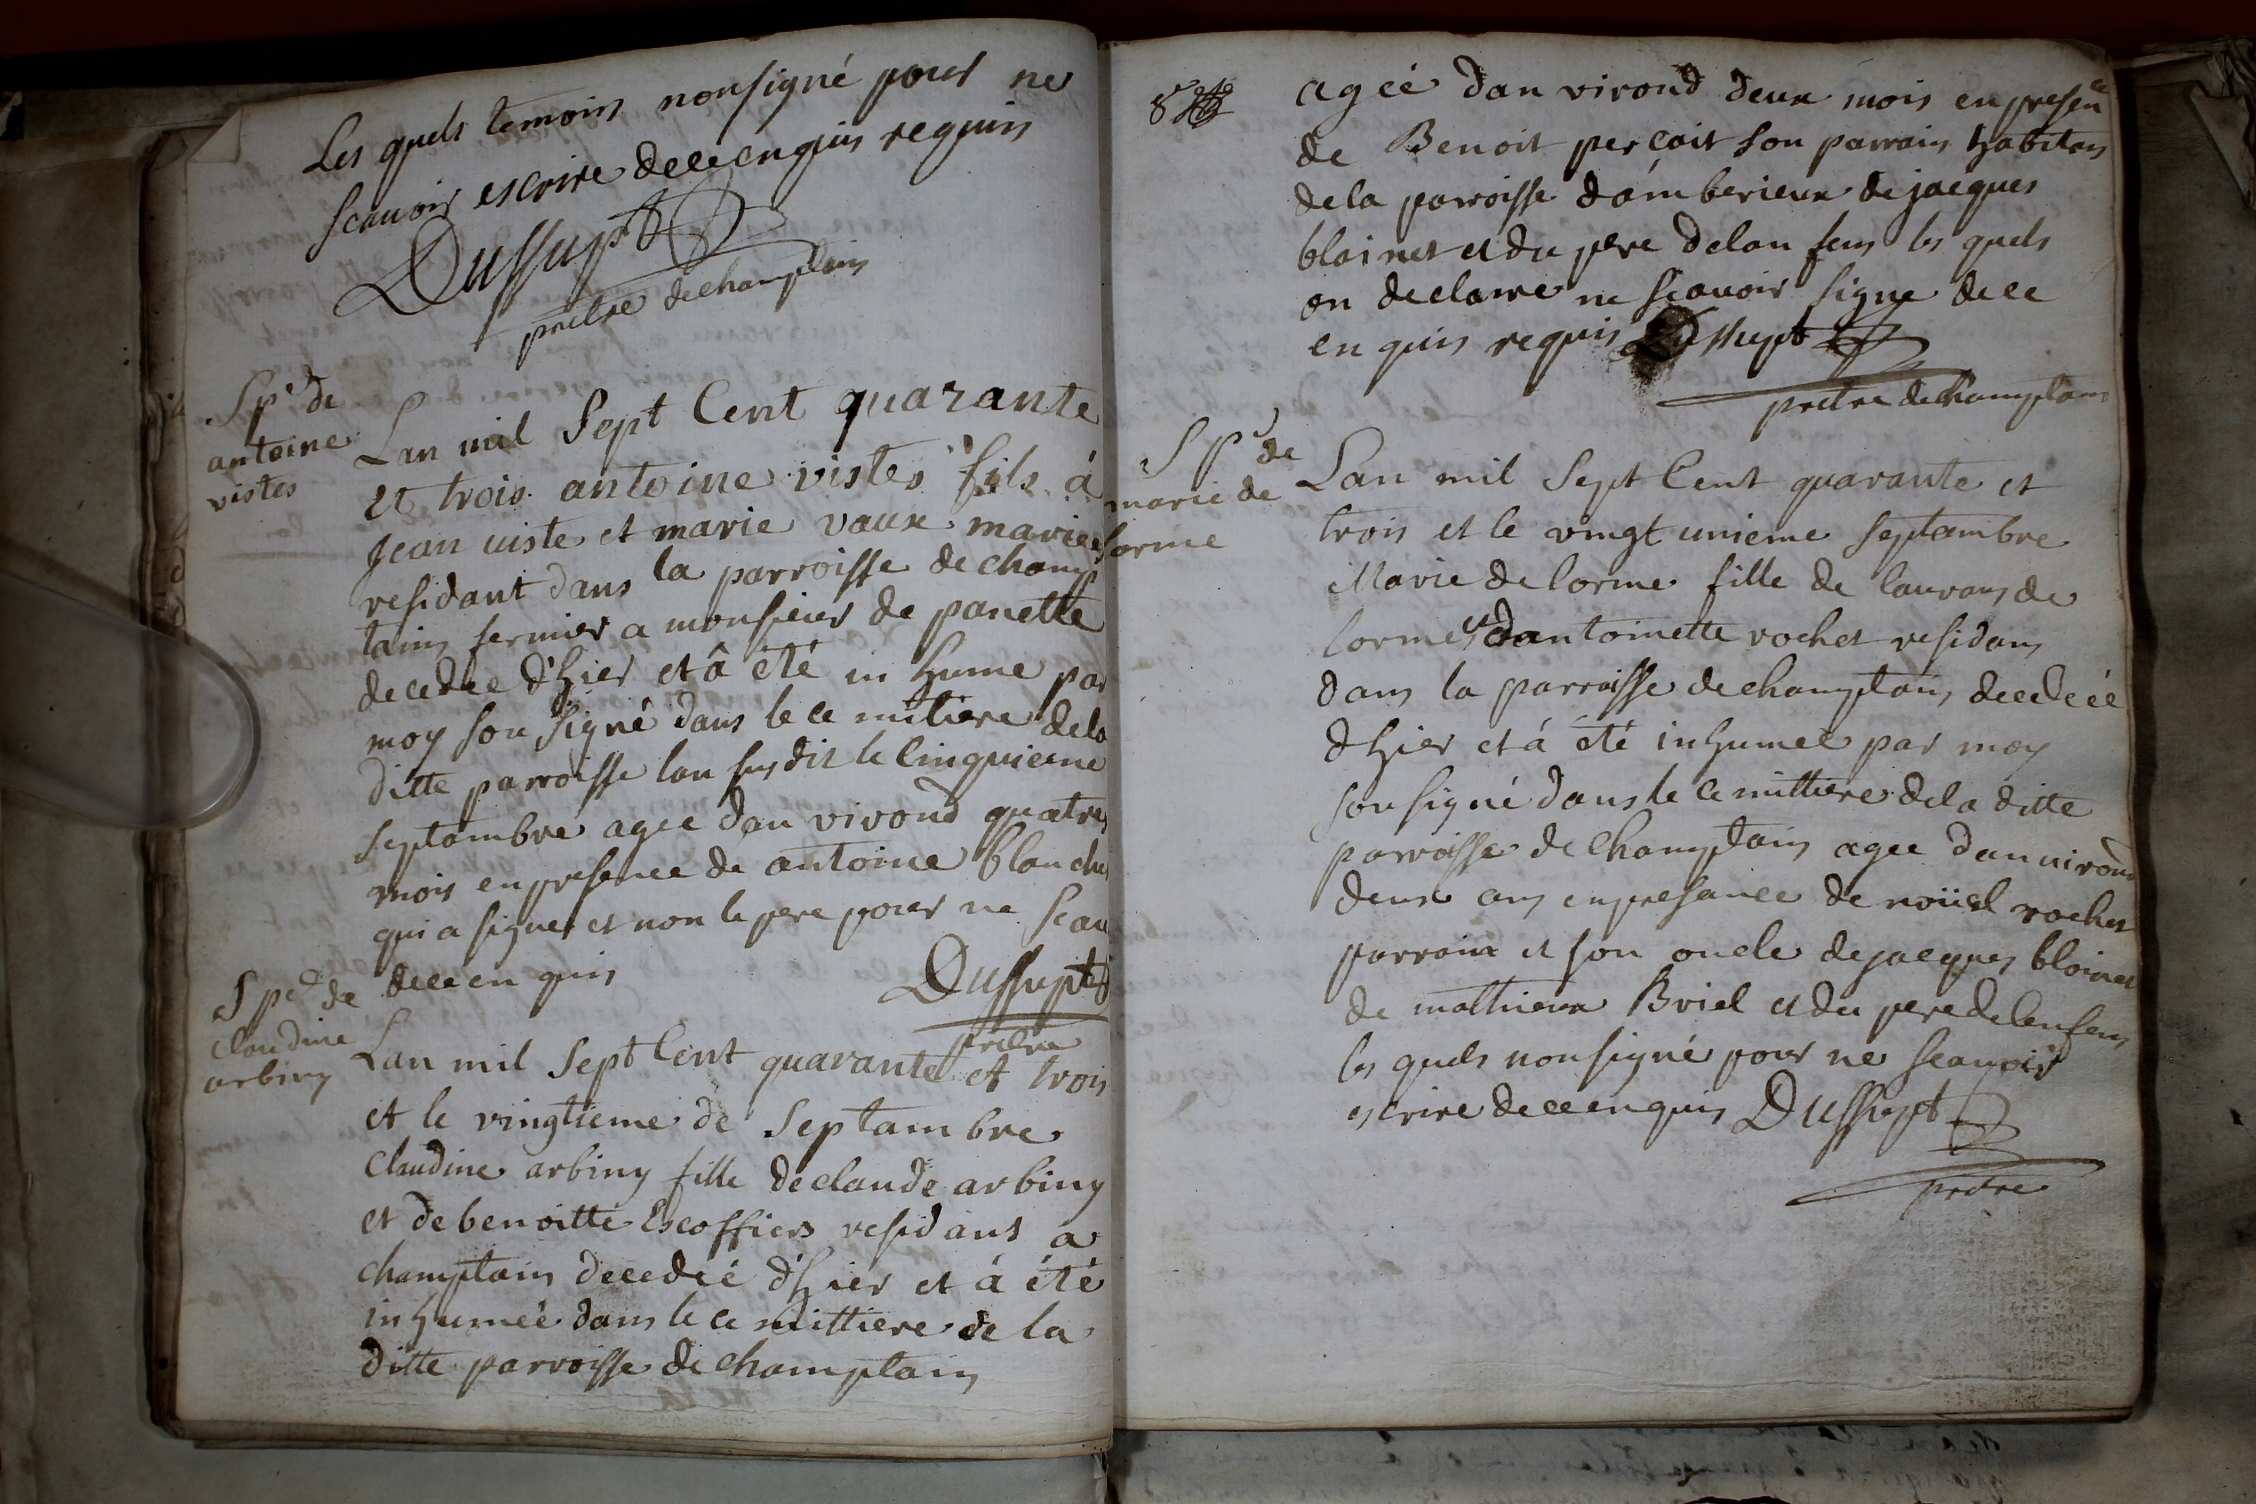 Les quels temoins nonsigné pour ne
scauoir escrire dece enquis requis
Dussupt
prêtre dechamptain
Spr de
antoine
vistes
Lan mil Sept Cent quarante
et trois antoine vistes fils à
Jean uiste et marie vaux mariees
residant dans la parroisse de champ
tains fermier a monsieur de panette
decedee d'hier et â été in hume par
moy sousigné dans le cemitiere dela
ditte parroisse lan susdit le Cinquieme
septambre agee dan virond quatres
mois enpresence de antoine blanche
qui a signer et non le pere pour ne Scau
dece en quis
Dussupt
prêtre
Spe de
Claudine
arbiny
Lan mil Sept Cent quarante et trois
et le vingtieme de Septambre
Claudine arbiny fille declaude arbiny
et debenoitte Escoffiers residans a
champtain decedeé d'hier et á été
inhumeé dans le cemittiere de la
ditte parroisse de champtain
8e
ageé dan virond deux mois enpresence
de Benoit perçait son parrain habitans
dela parroisse d'amberieux de jacques
blainet et du pere delan fens les quels
on declarre ne scauoir signe dece
en quis requis Dussupt
prêtre dechamptain
Spr de
marie de
lorme
Lan mil Sept Cent quarante et
trois et le vingt unieme septambre
Marie de lorme fille de laurans de
lorme et dantoinette rochet residans
dans la parroisse dechamptain decedeé
d'hier et á été inhumeé par moy
sousigné dans le cemittiere dela ditte
parroisse de champtain agee dan uirond
deux ans enpresance de noüel rochet
parrain et son oncle dejacques blainet
de mathieux Briel et du pere delenfens
les quels nonsigné pour ne scauoir
escrire dece enquis Dussupt
prêtre